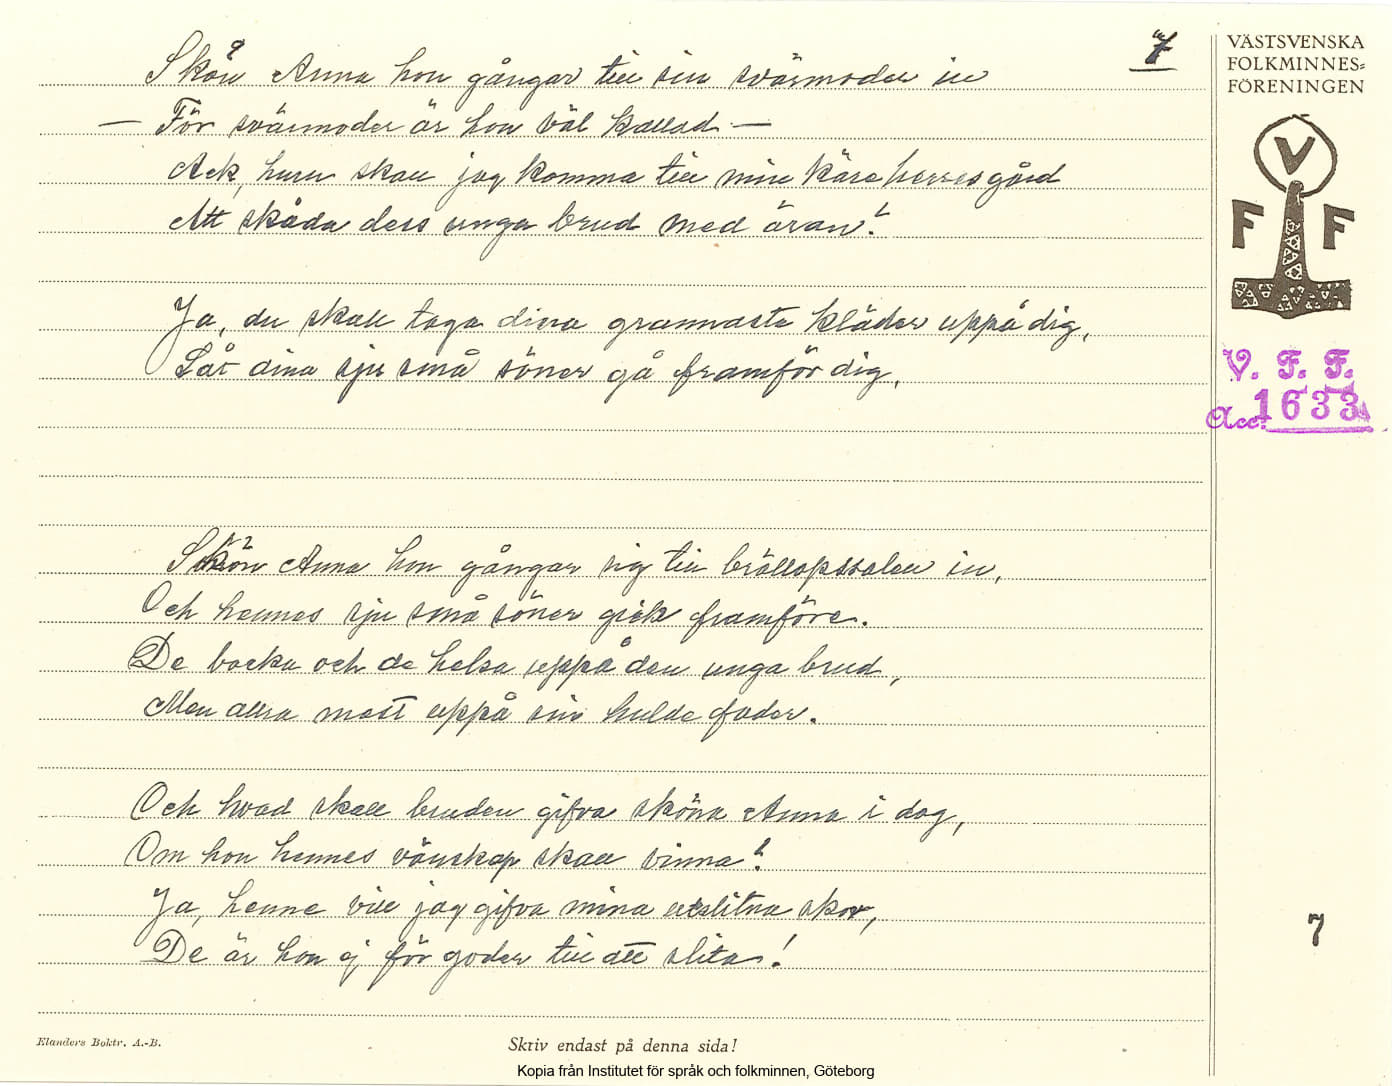 7
VÄSTSVENSKA
FOLKMINNES=
FÖRENINGEN
V
F F
V. F. F.
Acc. 1633
Skön Anna hon gångar till sin svärmoder in
— För svärmoder är hon väl kallad —
Ack, huru skall jag komma till min kära herres gård
Att skåda dess unga brud med äran?
Ja, du skall taga dina grannaste kläder uppå dig,
Låt dina sju små söner gå framför dig,
Skön Anna hon gångar sig till bröllopssalen in,
Och hennes sju små söner gick framföre.
De bocka och de helsa uppå den unga brud,
Men allra mest uppå sin hulde fader.
Och hvad skall bruden gifva sköna Anna i dag,
Om hon hennes vänskap skall vinna?
Ja, henne vill jag gifva mina utslitna skor,
De är hon ej för goder till att slita!
7
Elanders Boktr. A.-B.
Skriv endast på denna sida!
Kopia från Institutet för språk och folkminnen, Göteborg